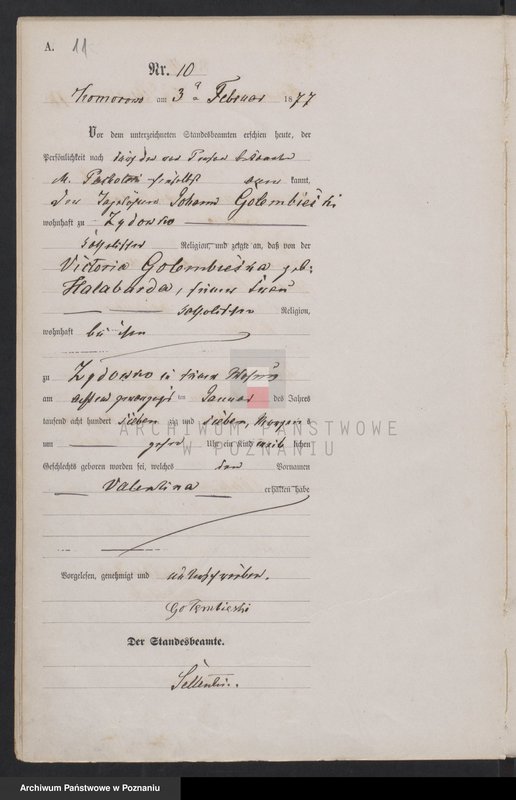 A. 11
Nr. 10
Komorowo am 3 Februar 1877
Vor dem unterzeichneten Standesbeamten erschien heute, der
Persönlichkeit nach durch den
kannt,
der Tagelöhner Johann Golembieski
wohnhaft zu Zydowko
katholischer Religion, und zeigte an, daß von der
Victoria Golombieska geb:
Halabarda, seiner Frau
katholischer Religion,
wohnhaft bei ihm
zu Zydowko in seiner Wohnung
am acht und zwanzigsten Januar des Jahres
tausend acht hundert sieben zig und sieben, Morgens
um Uhr ein Kind weib lichen
Geschlechts geboren worden sei, welches den Vornamen
Valentina erhalten habe
Vorgelesen, genehmigt und unterschrieben.
Golembieski
Der Standesbeamte.
ARCHIWUM PAŃSTWOWE
W POZNANIU
Archiwum Państwowe w Poznaniu